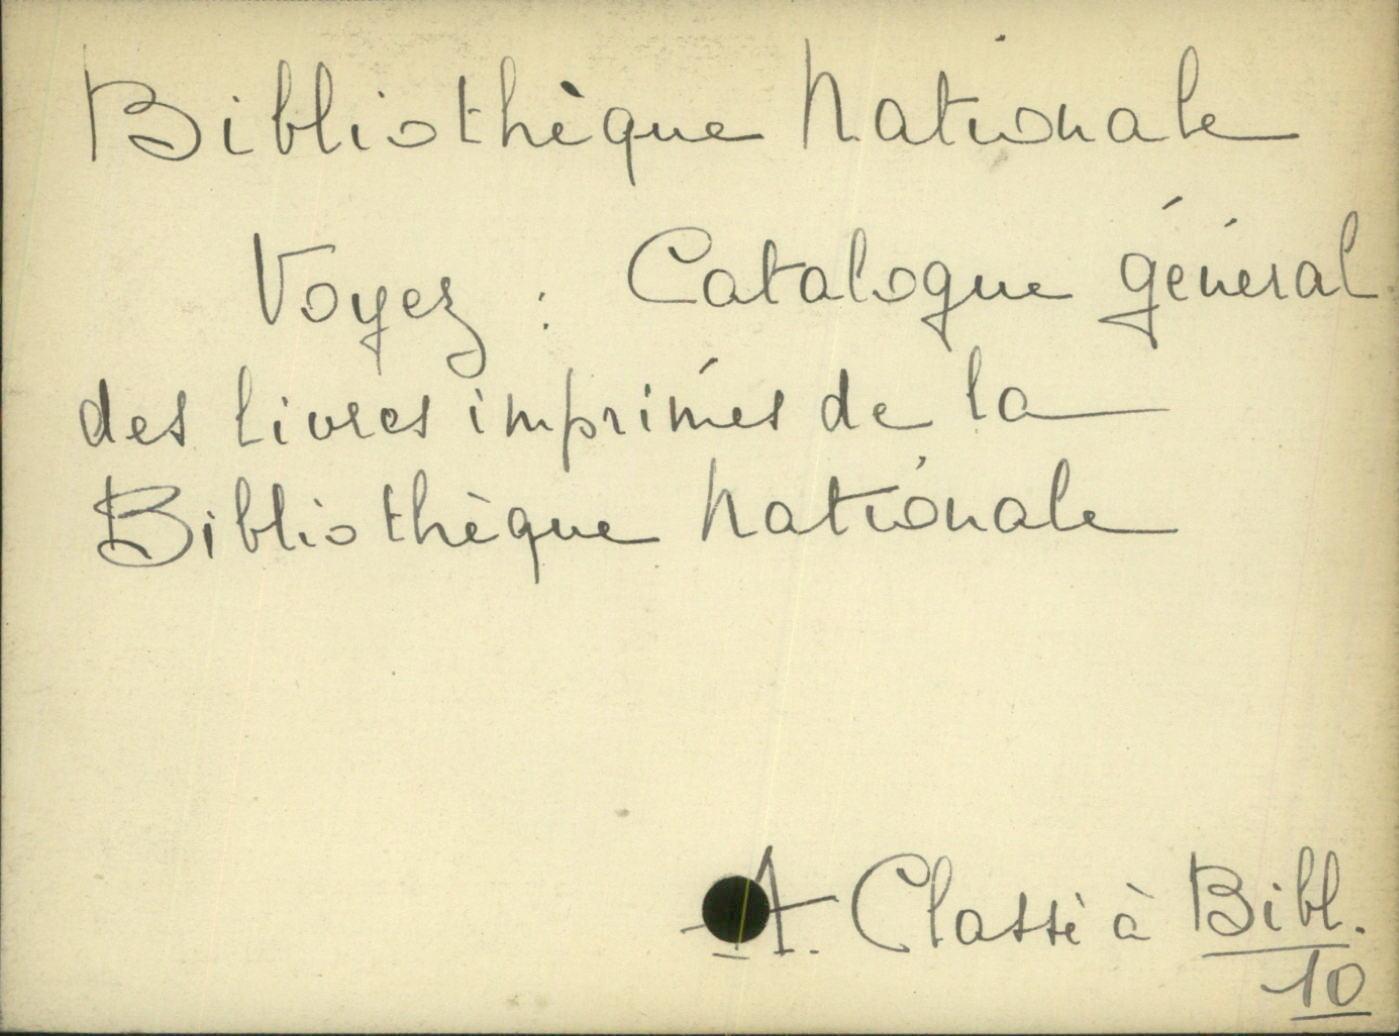 Bibliothèque Nationale
Voyez : Catalogue général
des livres imprimés de la
Bibliothèque Nationale
A. Classé à Bibl.
10